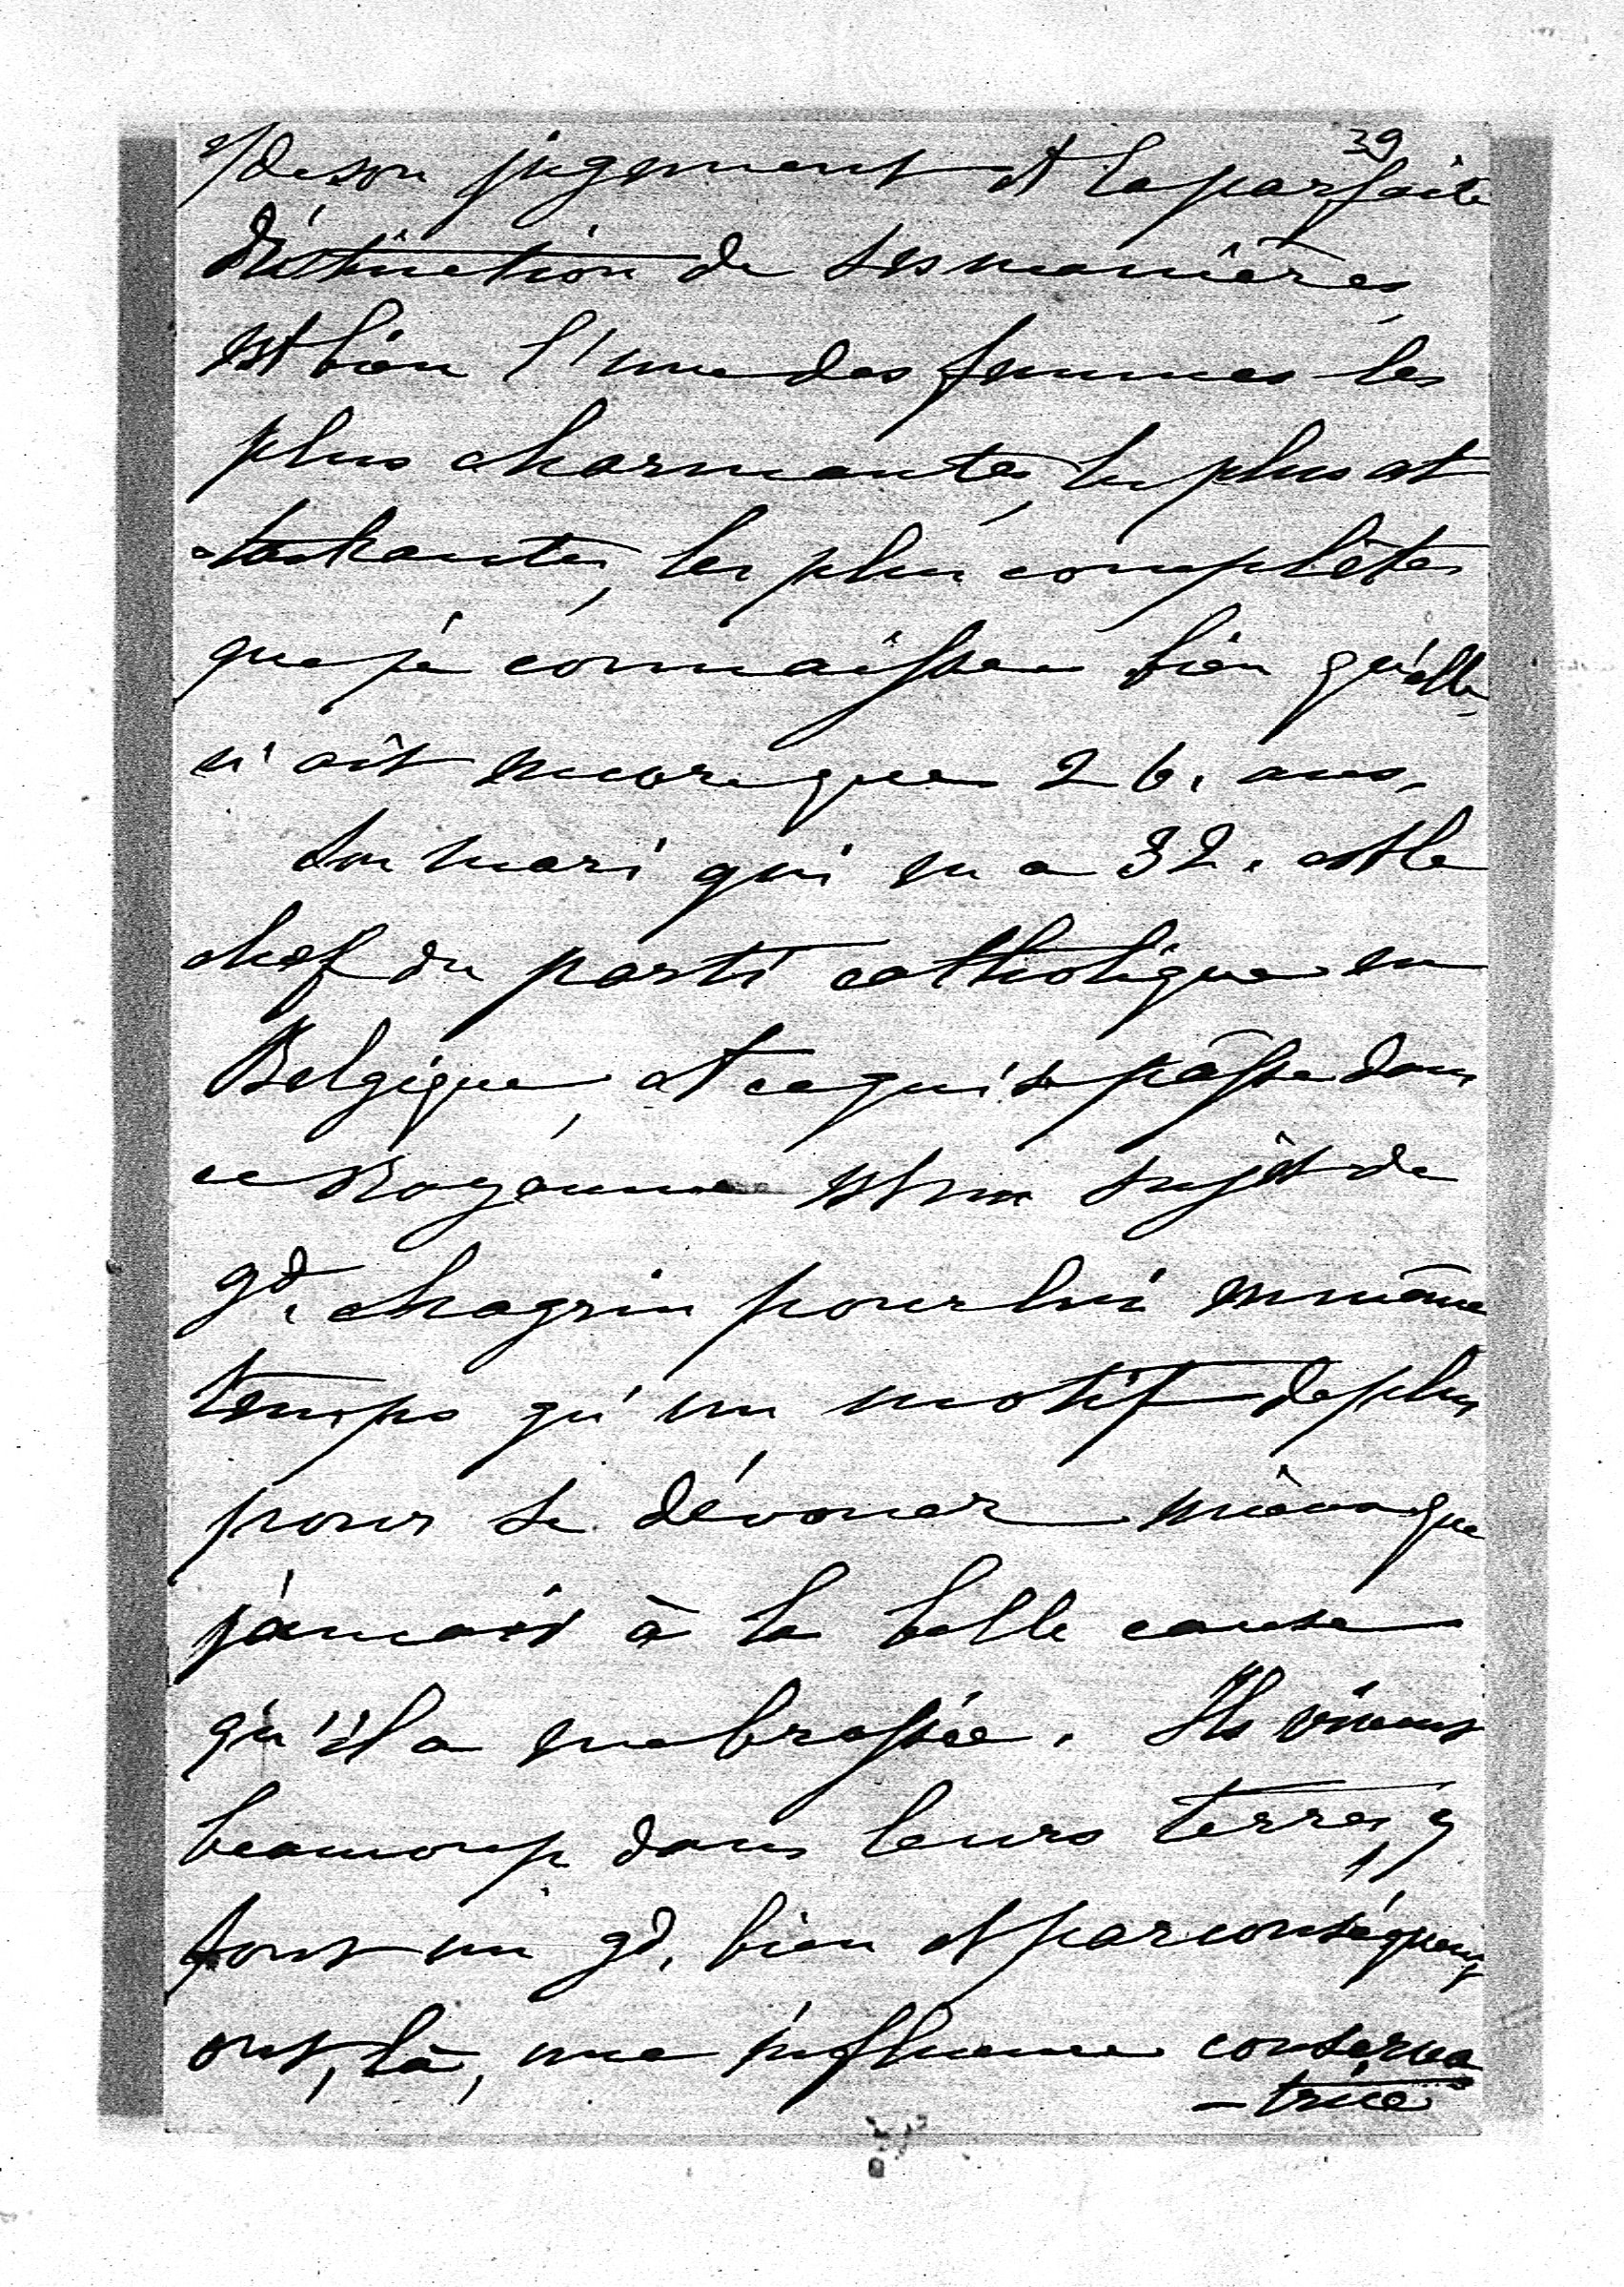 39
de son jugement et la parfaite
distinction de ses manières,
est bien l'une des femmes les
plus charmantes, les plus at
tachantes, les plus complêtes
que je connaisse bien qu'elle
n'ait encore que 26. ans.
Son mari qui en a 32. est le
chef du parti catholique en
Belgique, et ce qui se passe dans
ce Royaume est un sujet de
gd. chagrin pour lui en même
temps qu'un motif de plus
pour se dévouer mieux que
jamais à la belle cause
qu'il a embrassée. Ils vivent
beaucoup dans leurs terres, y
font un gd. bien et par conséquent
ont, là, une influence conserva
-trice